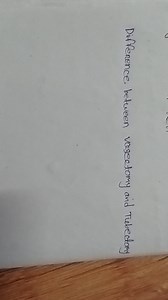 Difference between vasectomy and Tubectomy